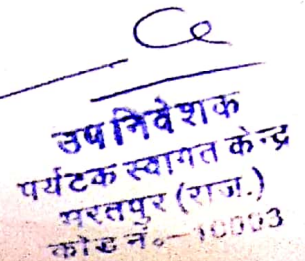 उपनिवेशक
पर्यटक स्वागत केन्द्र
भरतपुर (राज.)
कोड नं०-